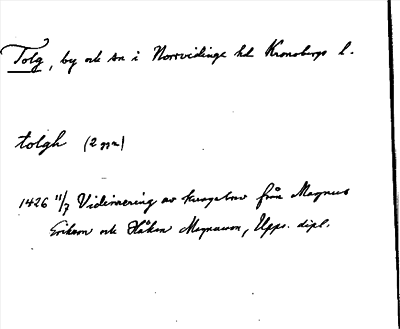 Tolg, by och sn i Norrvidinge hd Kronobergs l.
tolgh (2 ggr)
1426 11/7 Vidimering av kungabrev från Magnus
Erikson och Håkan Magnusson, Upps. dipl.